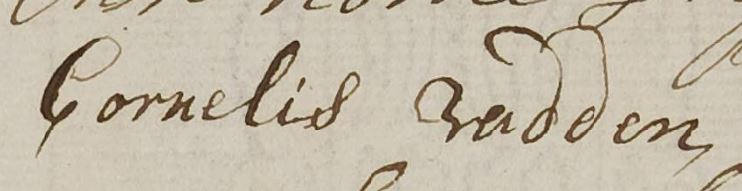 Cornelis Radden